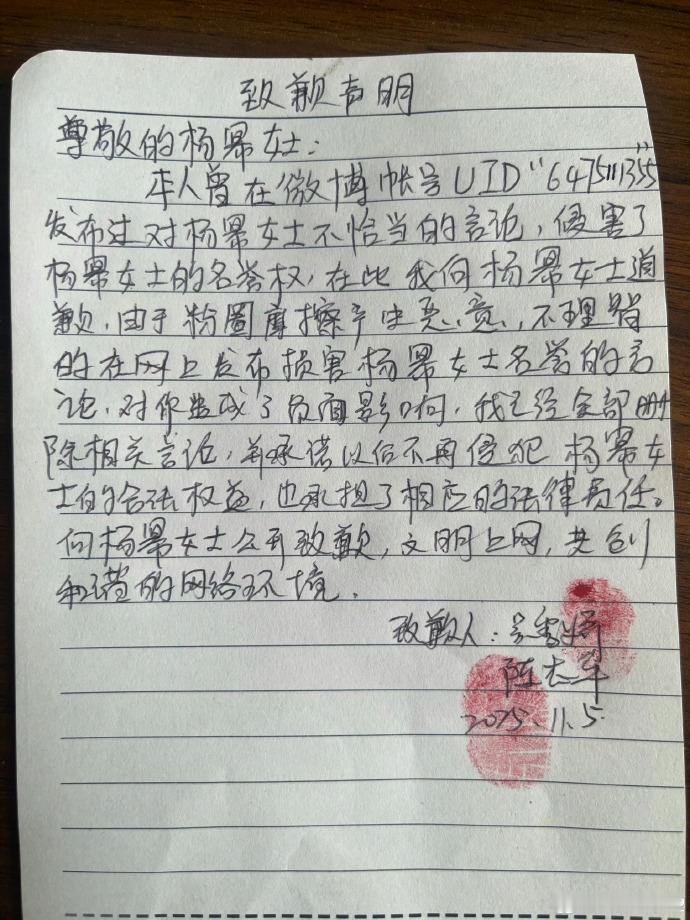 致歉声明
尊敬的杨幂女士：
本人曾在微博帐号UID“6475111355”
发布过对杨幂女士不恰当的言论，侵害了
杨幂女士的名誉权，在此我向杨幂女士道
歉，由于粉圈摩擦产生恶意，不理智
的在网上发布损害杨幂女士名誉的言
论，对你造成了负面影响，我已经全部删
除相关言论，并承诺以后不再侵犯杨幂女
士的合法权益，也承担了相应的法律责任。
向杨幂女士公开致歉，文明上网，共创
和谐的网络环境。
致歉人：
陈志华
2025.11.5